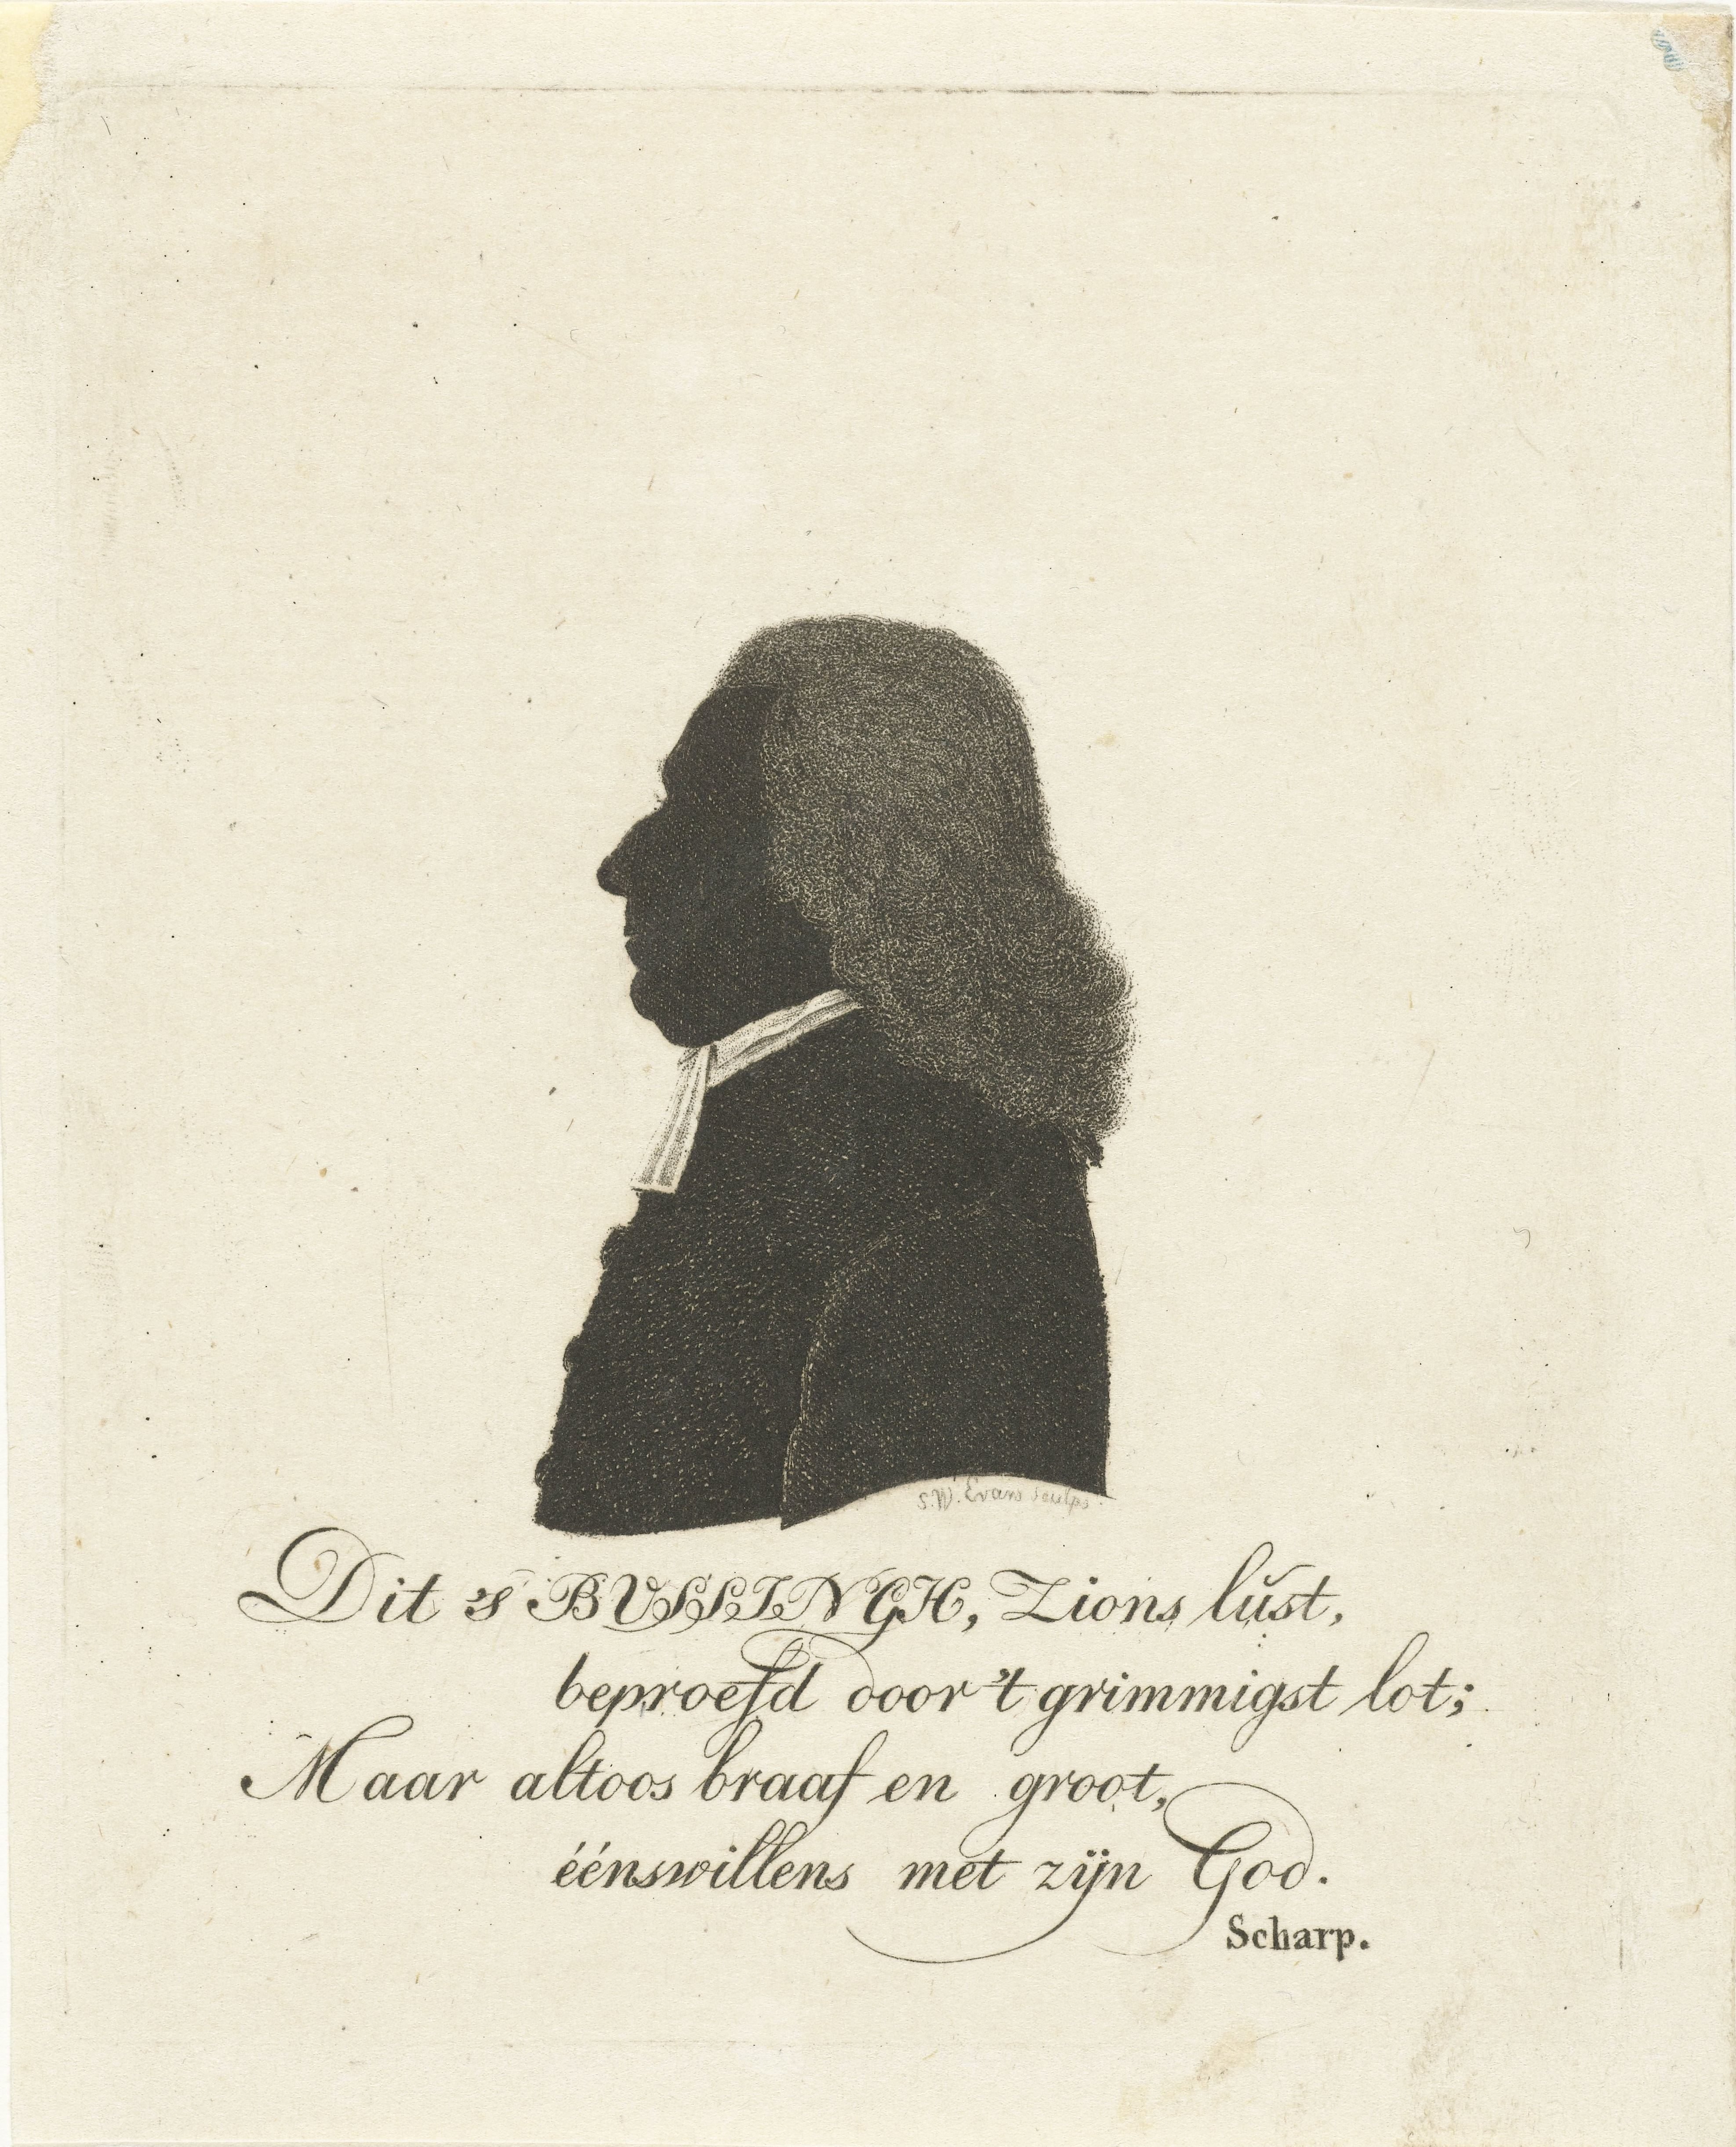 S.W. Evans sculps.
Dit 's BUSSINGH, Zions lust,
beproefd door 't grimmigst lot;
Maar altoos braaf en groot,
éénswillens met zijn God.
Scharp.